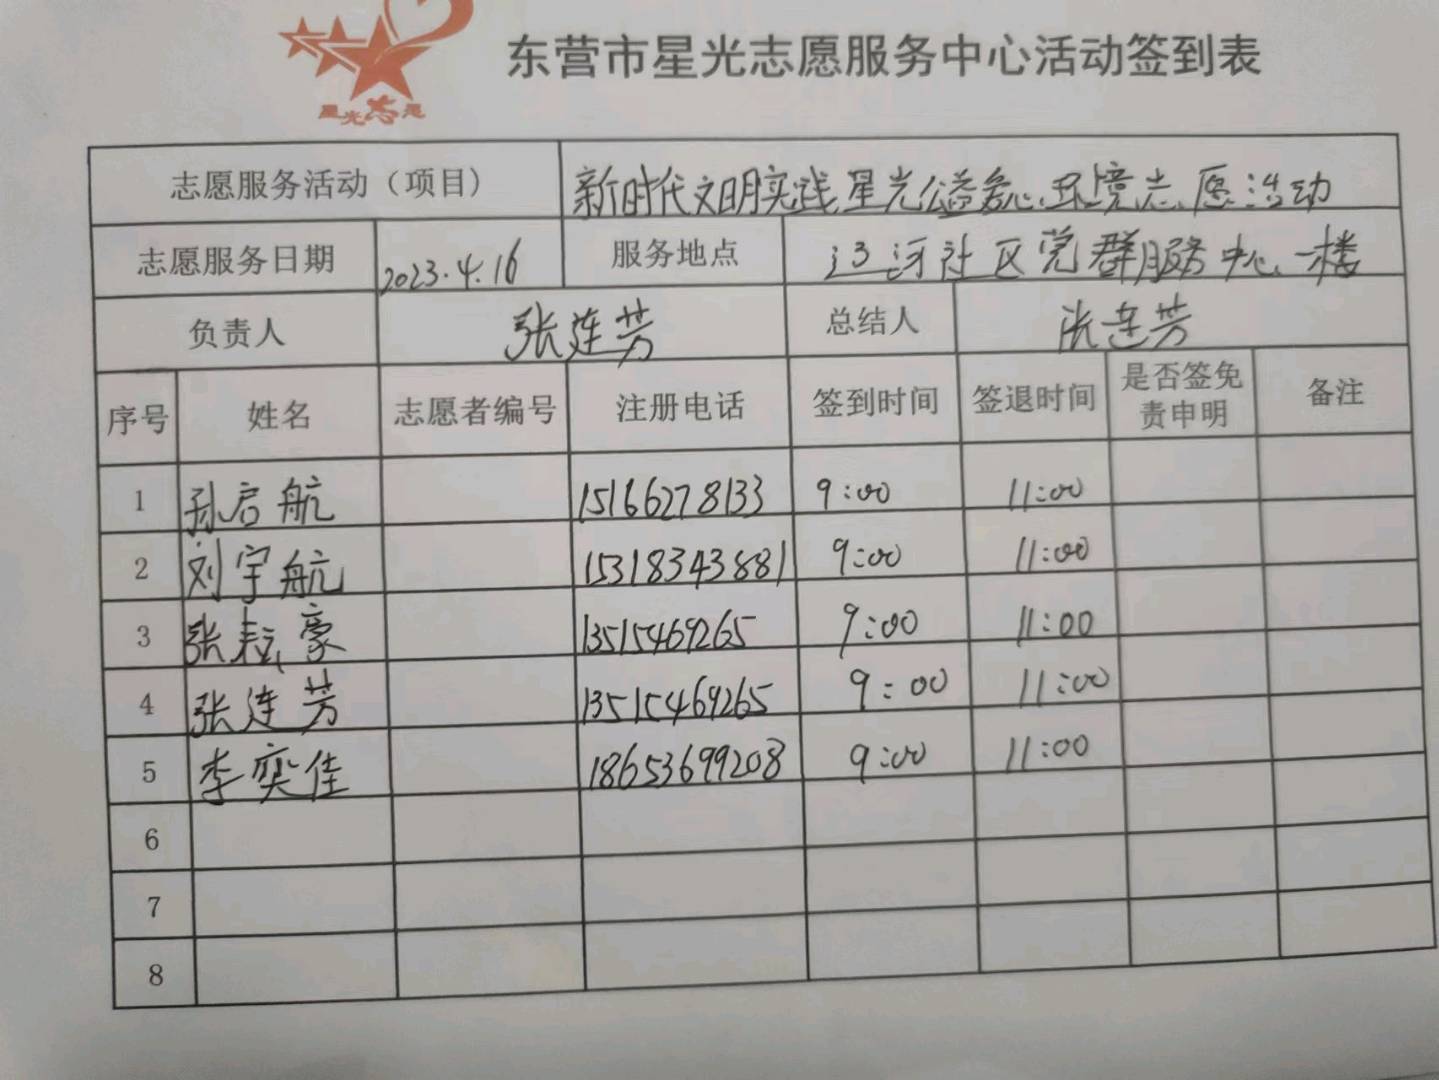 星光志愿
东营市星光志愿服务中心活动签到表
志愿服务活动（项目） 新时代文明实践,星光公益爱心,环境志愿活动
志愿服务日期 2023.4.16 服务地点 河社区党群服务中心一楼
负责人 张连芳 总结人 张连芳
序号 姓名 志愿者编号 注册电话 签到时间 签退时间 是否签免责申明 备注
1 孙启航 15166278133 9:00 11:00
2 刘宇航 15318343881 9:00 11:00
3 张耘豪 13515469265 9:00 11:00
4 张连芳 13515469265 9:00 11:00
5 李奕佳 18653699208 9:00 11:00
6
7
8